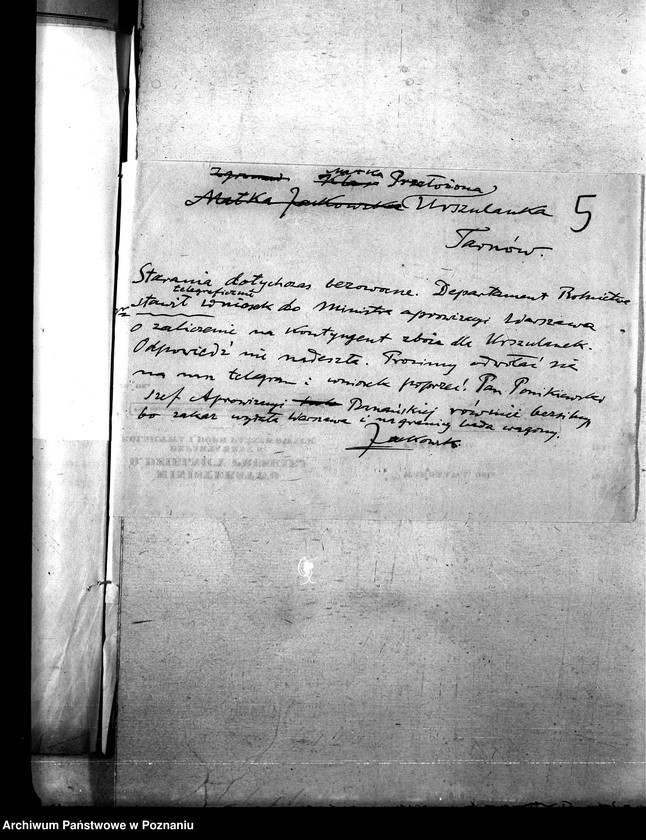 Matka Przełożona
Matka Jackowska Urszulanka
5
Tarnów.
Starania dotychczas bezowocne. Departament Rolnictwa
telegraficznie
stawił wniosek do Ministra aprowizacji Warszawa
o zaliczenie na kontyngent zboża dla Urszulanek.
Odpowiedź nie nadeszła. Prosimy odwołać się
na nasz telegram i wniosek poprzeć. Pan Ponikiewski
szef Aprowizacji Poznańskiej również bezsilny
bo zakaz wydała Warszawa i na granicy bada wagony.
Jackowski
Archiwum Państwowe w Poznaniu